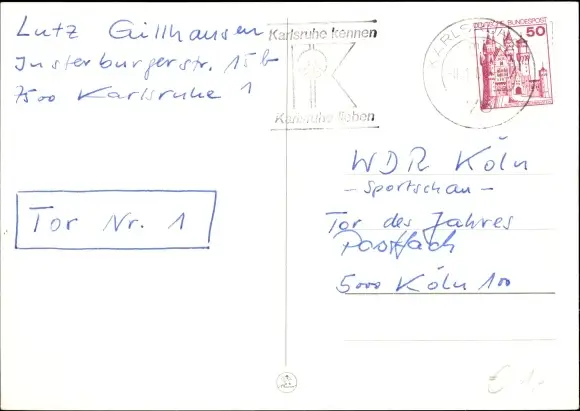 Lutz Gillhausen
Insterburgerstr. 15b
7500 Karlsruhe 1
Karlsruhe kennen
Karlsruhe lieben
KARLSRUHE
DEUTSCHE BUNDESPOST
50
Tor Nr. 1
WDR Köln
- Sportschau -
Tor des Jahres
Postfach
5000 Köln 100